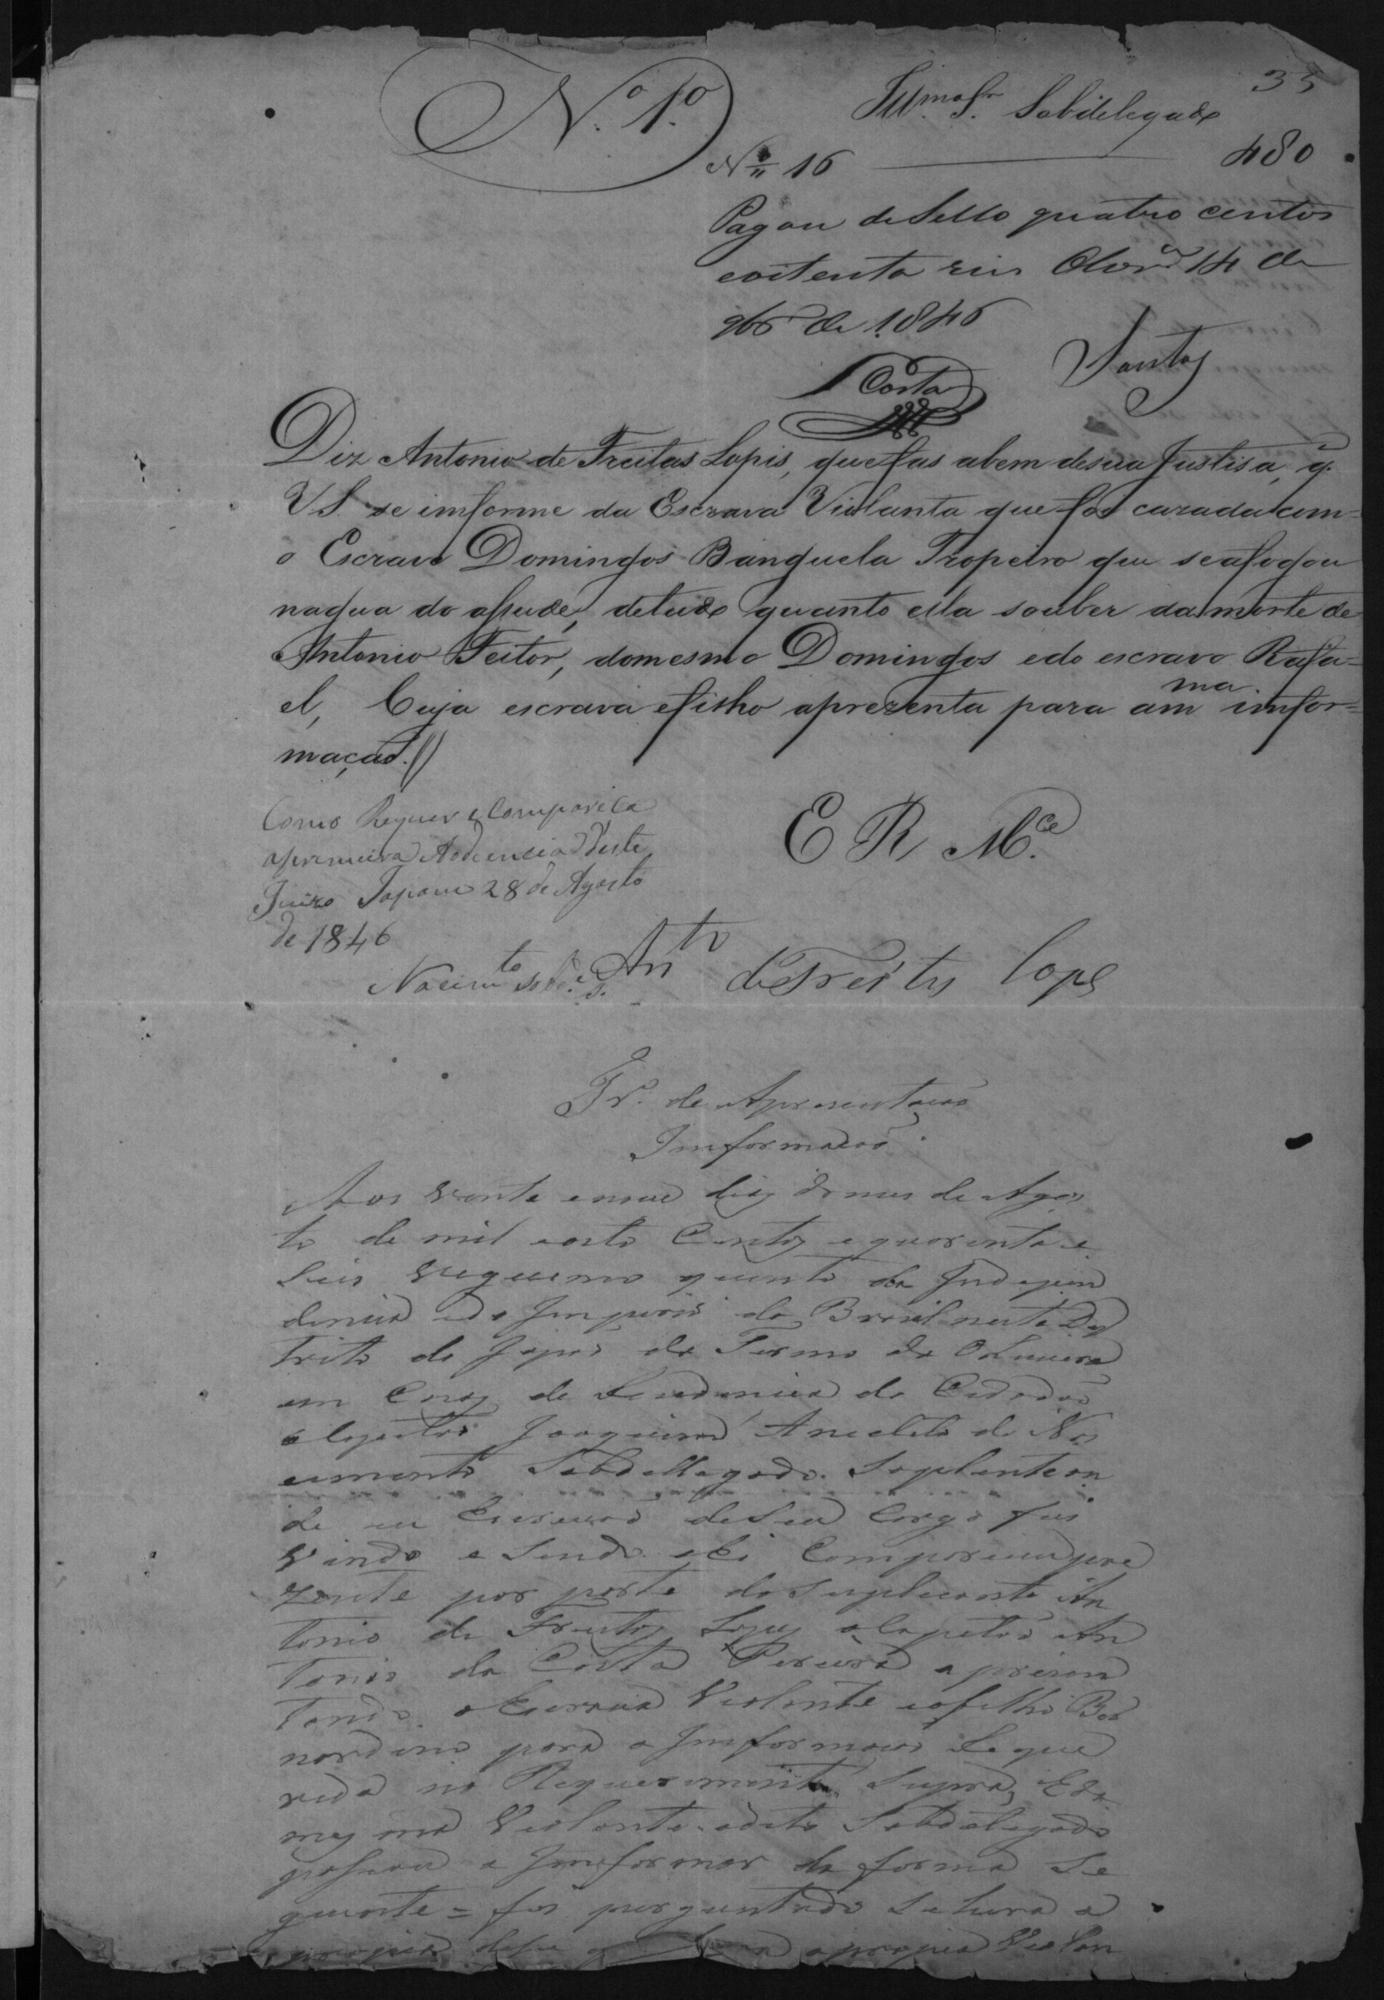 35
N.º 1.º
Illmo Sr. Subdelegado
Nº 16 480
Pagou de Sello quatro centos
eoitenta reis Olivrª 14 de
9bro de 1846
Costa Santos
Diz Antonio de Freitas Lopis, que fas abem desua Justisa, q.
V S. se imforme da Escrava Violanta que foi cazada com
o Escravo Domingos Banguela Tropeiro que seafogou
nagua do assude, detudo quanto ella souber da morte de
Antonio Feitor, domesmo Domingos edo escravo Rafa=
el, Cuja escrava efisho aprezenta para am.ma imfor=
maçaõ.//
Como Requer e Compareça
aprimeira Audiencia d'este
Juizo Japaõ 28 de Agosto
de 1846
Nacim.to
E R M.ce
Ant.o de Freitas Lopes
Tr.º de Apresentacaõ
Imformacaõ
Aos vente enove dias do mes de Agos
to de mil eoito Centos equarenta e
Seis vegecimo quinto da Indepen
dencia edo Imperio do Brasil neste Dis
trito do Japaõ do Termo da Oliveira
em Cazas de Rezidencia do Cidadaõ
oCapitaõ Joaquim Anacleto do Nas
cimento Sobdellegado Soplente on
de eu Escrivaõ deSeu Cargo fui
vindo e Sendo ahi Compareceu pre
zente por parte do Suplicante An
tonio de Freitas Lopes oCapitaõ An
tonio da Costa Pereira aprezen
tando aEscrava Violante eofilho Ber
nardino para a Imformacaõ Reque
rida no Requerimento Supra, Eda
mesma Violante odito Sobdelegado
passou a Imformar da forma Se
guinte = foi preguntado Sehera a
propria Violan